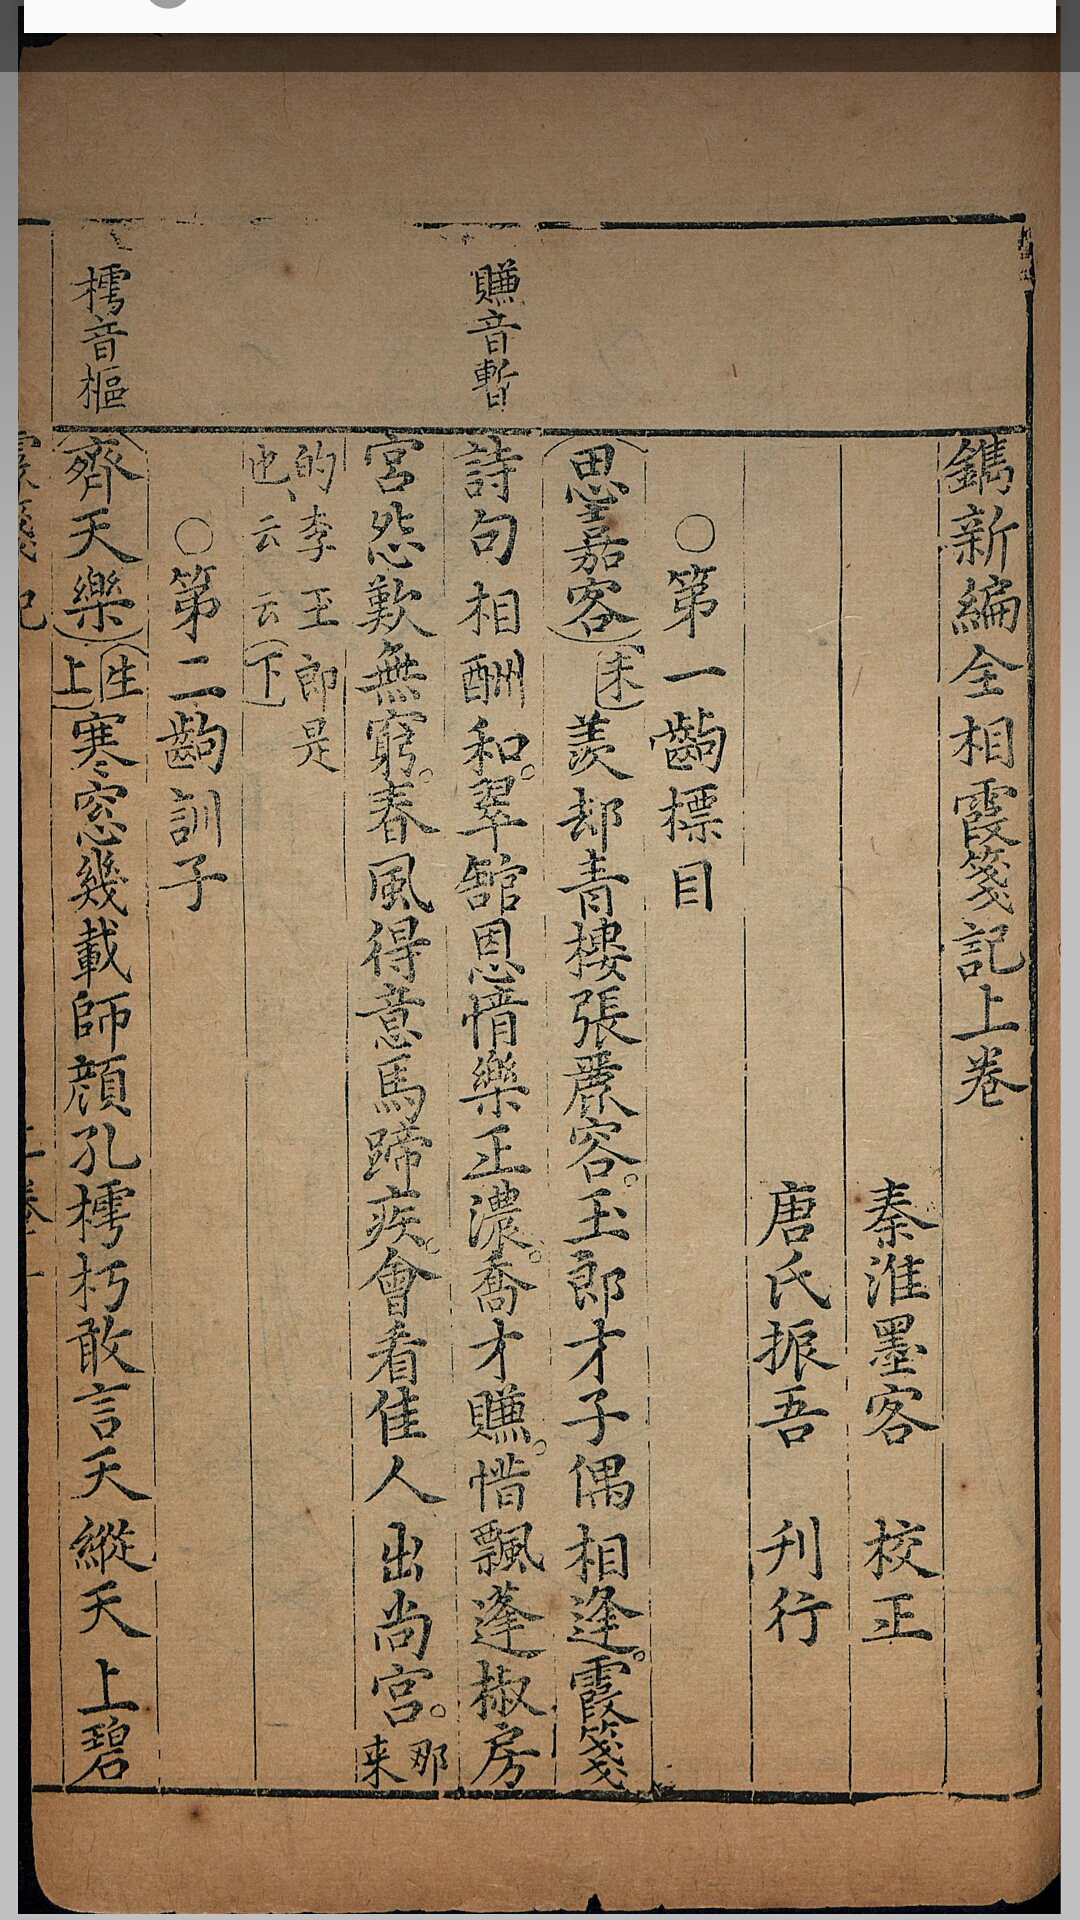 鐫新編全相霞箋記上卷
秦淮墨客 校正
唐氏振吾 刊行
○第一齣標目
思嘉客 末 羨却青樓張麗容。玉郎才子偶相逢。霞箋
賺音暫
詩句相酬和。翠舘恩情樂正濃。喬才賺。惜飄蓬椒房
宮怨歎無窮。春風得意馬蹄疾。會看佳人出尚宮。那来
的李玉郎是
也、云云下
○第二齣訓子
樗音樞
齊天樂 生上 寒窓幾載師顔孔樗朽敢言天縱天上碧